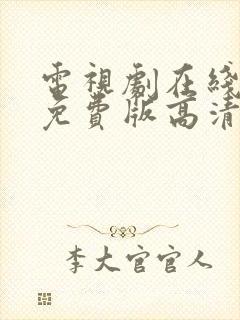 電視劇在綫
免費版高清
李大官官人